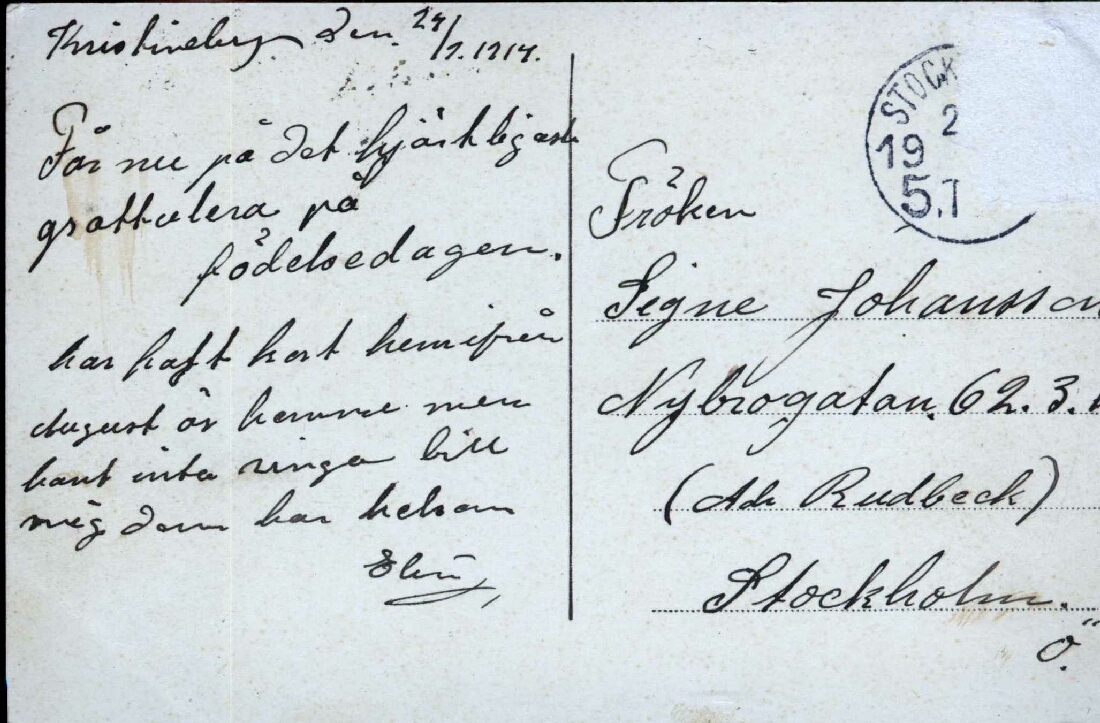 Kristineberg den 24/2.1914.
Får nu på det hjärtligaste
grattulera på
födelsedagen.
har haft kort hemifrån
August är hemma men
hant inte ringa till
mig dom har helsan
Elin
STOCK
2
19
5.T
Fröken
Signe Johansson
Nybrogatan. 62. 3.
(Adr Rudbeck)
Stockholm.
Ö.